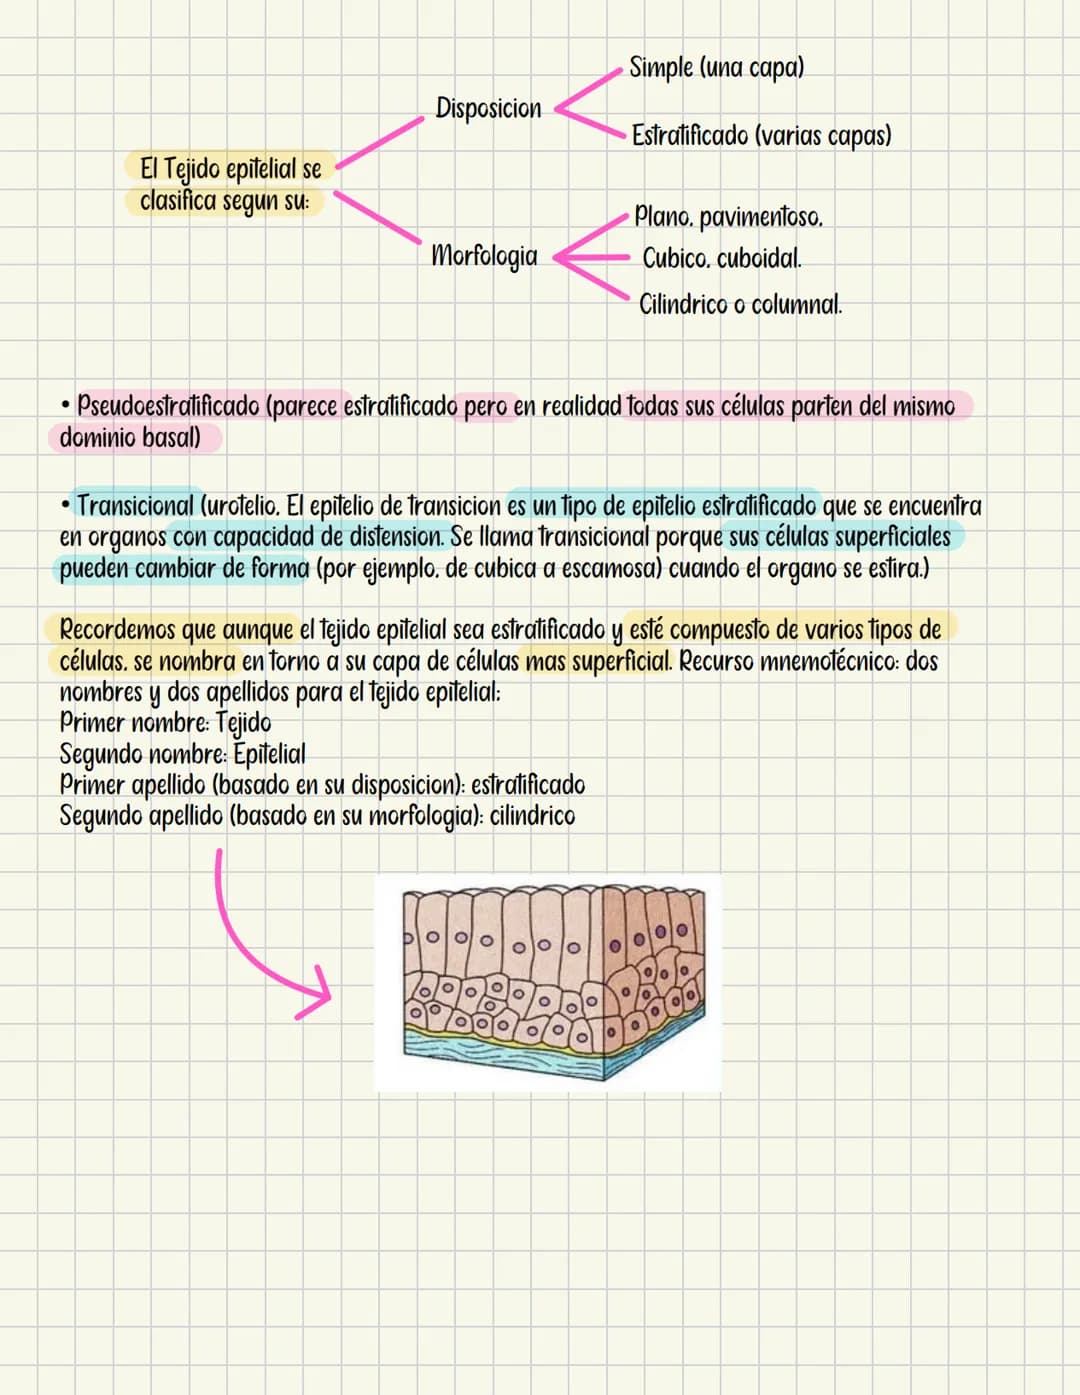 Simple (una capa)
Disposicion
Estratificado (varias capas)
El Tejido epitelial se
clasifica segun su:
Plano, pavimentoso,
Morfologia
Cubico, cuboidal.
Cilindrico o columnal.
• Pseudoestratificado (parece estratificado pero en realidad todas sus células parten del mismo
dominio basal)
• Transicional (urotelio, El epitelio de transicion es un tipo de epitelio estratificado que se encuentra
en organos con capacidad de distension. Se llama transicional porque sus células superficiales
pueden cambiar de forma (por ejemplo, de cubica a escamosa) cuando el organo se estira.)
Recordemos que aunque el tejido epitelial sea estratificado y esté compuesto de varios tipos de
células, se nombra en torno a su capa de células mas superficial. Recurso mnemotécnico: dos
nombres y dos apellidos para el tejido epitelial:
Primer nombre: Tejido
Segundo nombre: Epitelial
Primer apellido (basado en su disposicion): estratificado
Segundo apellido (basado en su morfologia): cilindrico